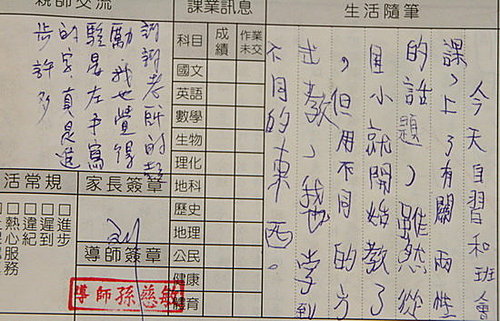 生活隨筆
今天自習和班會
課,上了有關兩性
的話題,雖然從
国小就開始教了
,但用不同的方
式教,我也學到
不同的東西。
課業訊息
科目 成績 作業未交
國文
英語
數學
生物
理化
地科
歷史
地理
公民
健康
體育
親師交流
謝謝老師的鼓
勵,我也覺得
雖是左手寫
的字,真是進
步許多
家長簽章
導師簽章
導師孫慈敏
活常規
□進步
□遲到
□違紀
□熱心服務